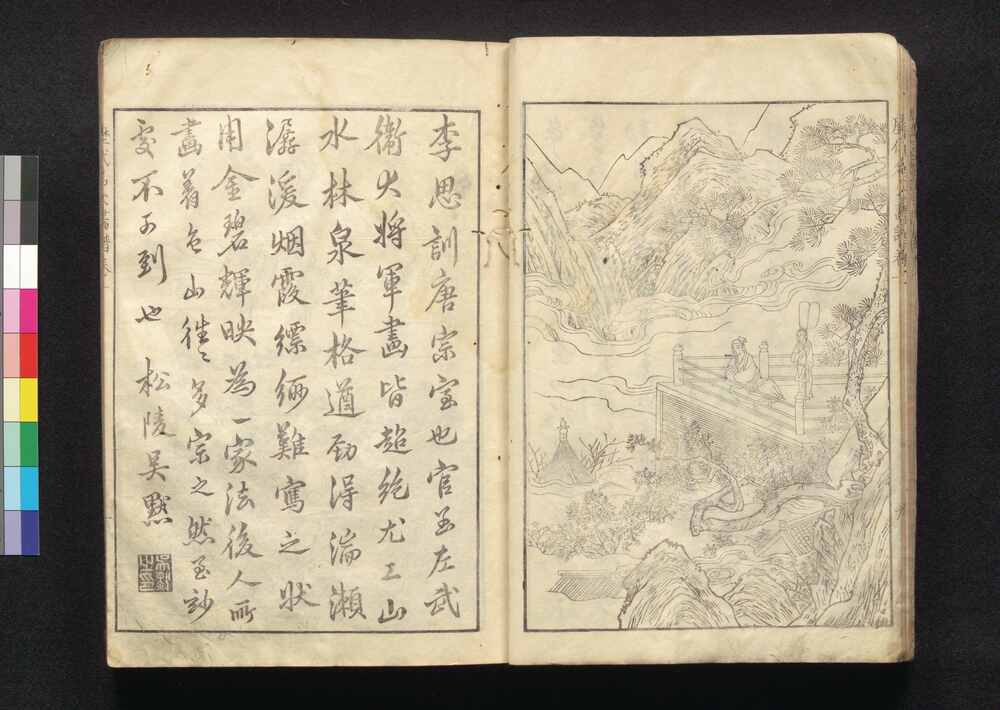 李思訓唐宗室也官至左武
衛大將軍畫皆超絶尤工山
水林泉筆格遒勁得湍瀨
潺湲烟霞縹緲難寫之狀
用金碧輝映為一家法後人所
畫着色山徃〻多宗之然至妙
處不可到也　松陵吳黙